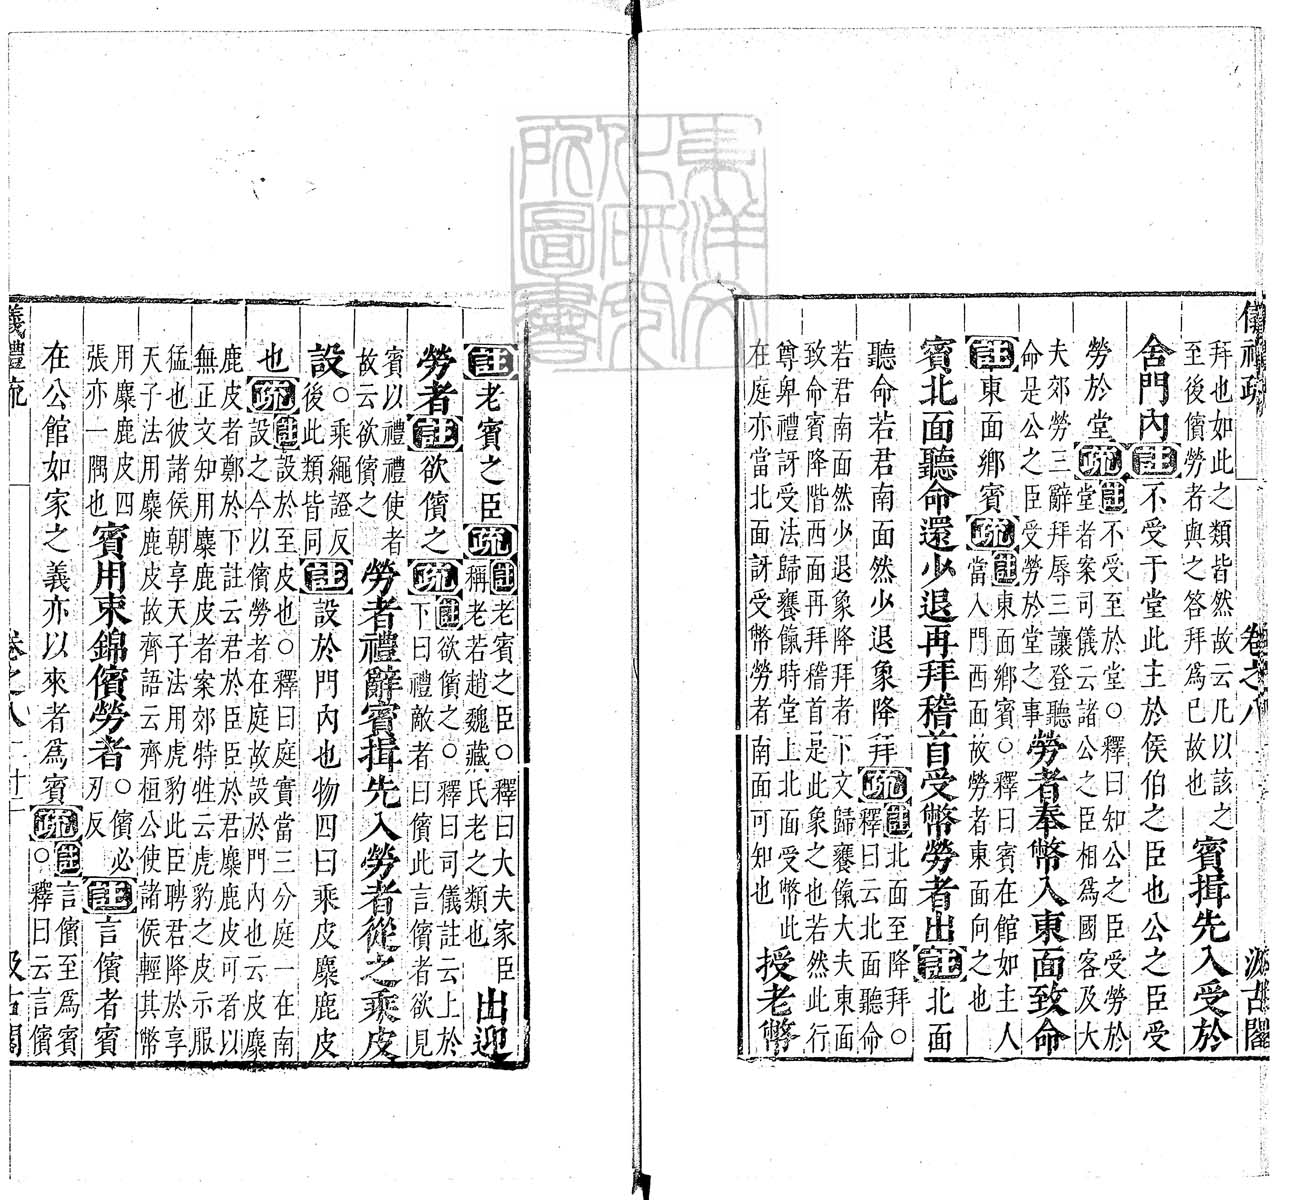 儀禮疏 卷之八 汲古閣
拜也如此之類皆然故云凡以該之
至後儐勞者與之答拜爲已故也
賓揖先入受於
舍門內註不受于堂此主於侯伯之臣也公之臣受
勞於堂疏註不受至於堂○釋曰知公之臣受勞於
堂者案司儀云諸公之臣相爲國客及大
夫郊勞三辭拜辱三讓登聽
命是公之臣受勞於堂之事
勞者奉幣入東面致命
註東面鄉賓疏註東面鄉賓○釋曰賓在館如主人
當入門西面故勞者東面向之也
賓北面聽命還少退再拜稽首受幣勞者出註北面
聽命若君南面然少退象降拜疏註北面至降拜○
釋曰云北面聽命
若君南面然少退象降拜者下文歸饔餼大夫東面
致命賓降階西面再拜稽首是此象之也若然此行
尊卑禮訝受法歸饔餼時堂上北面受幣此
在庭亦當北面訝受幣勞者南面可知也
授老幣
註老賓之臣疏註老賓之臣○釋曰大夫家臣
稱老若趙魏臧氏老之類也
出迎
勞者註欲儐之疏註欲儐之○釋曰司儀註云上於
下曰禮敵者曰儐此言儐者欲見
賓以禮禮使者
故云欲儐之
勞者禮辭賓揖先入勞者從之乘皮
設○乘繩證反
後此類皆同
註設於門內也物四曰乘皮麋鹿皮
也疏註設於至皮也○釋曰庭實當三分庭一在南
設之今以儐勞者在庭故設於門內也云皮麋
鹿皮者鄭於下註云君於臣臣於君麋鹿皮可者以
無正文知用麋鹿皮者案郊特牲云虎豹之皮示服
猛也彼諸侯朝享天子法用虎豹此臣聘君降於享
天子法用麋鹿皮故齊語云齊桓公使諸侯輕其幣
用麋鹿皮四
張亦一隅也
賓用束錦儐勞者○儐必
刃反
註言儐者賓
在公館如家之義亦以來者爲賓疏註言儐至爲賓
○釋曰云言儐
儀禮疏 卷之八 二十二 汲古閣
東洋文化研究所圖書